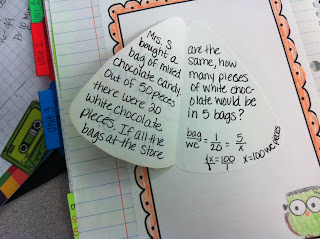 Mrs. S
bought a
bag of mixed
chocolate candy.
Out of 50 pieces
there were 20
white chocolate
pieces. If all the
bags at the store
are the
same, how
many pieces
of white choc-
olate would be
in 5 bags?
bag/wc = 1/20 = 5/x
1x/1 = 100/1 x=100 wc pieces
Unit 2
Unit 3